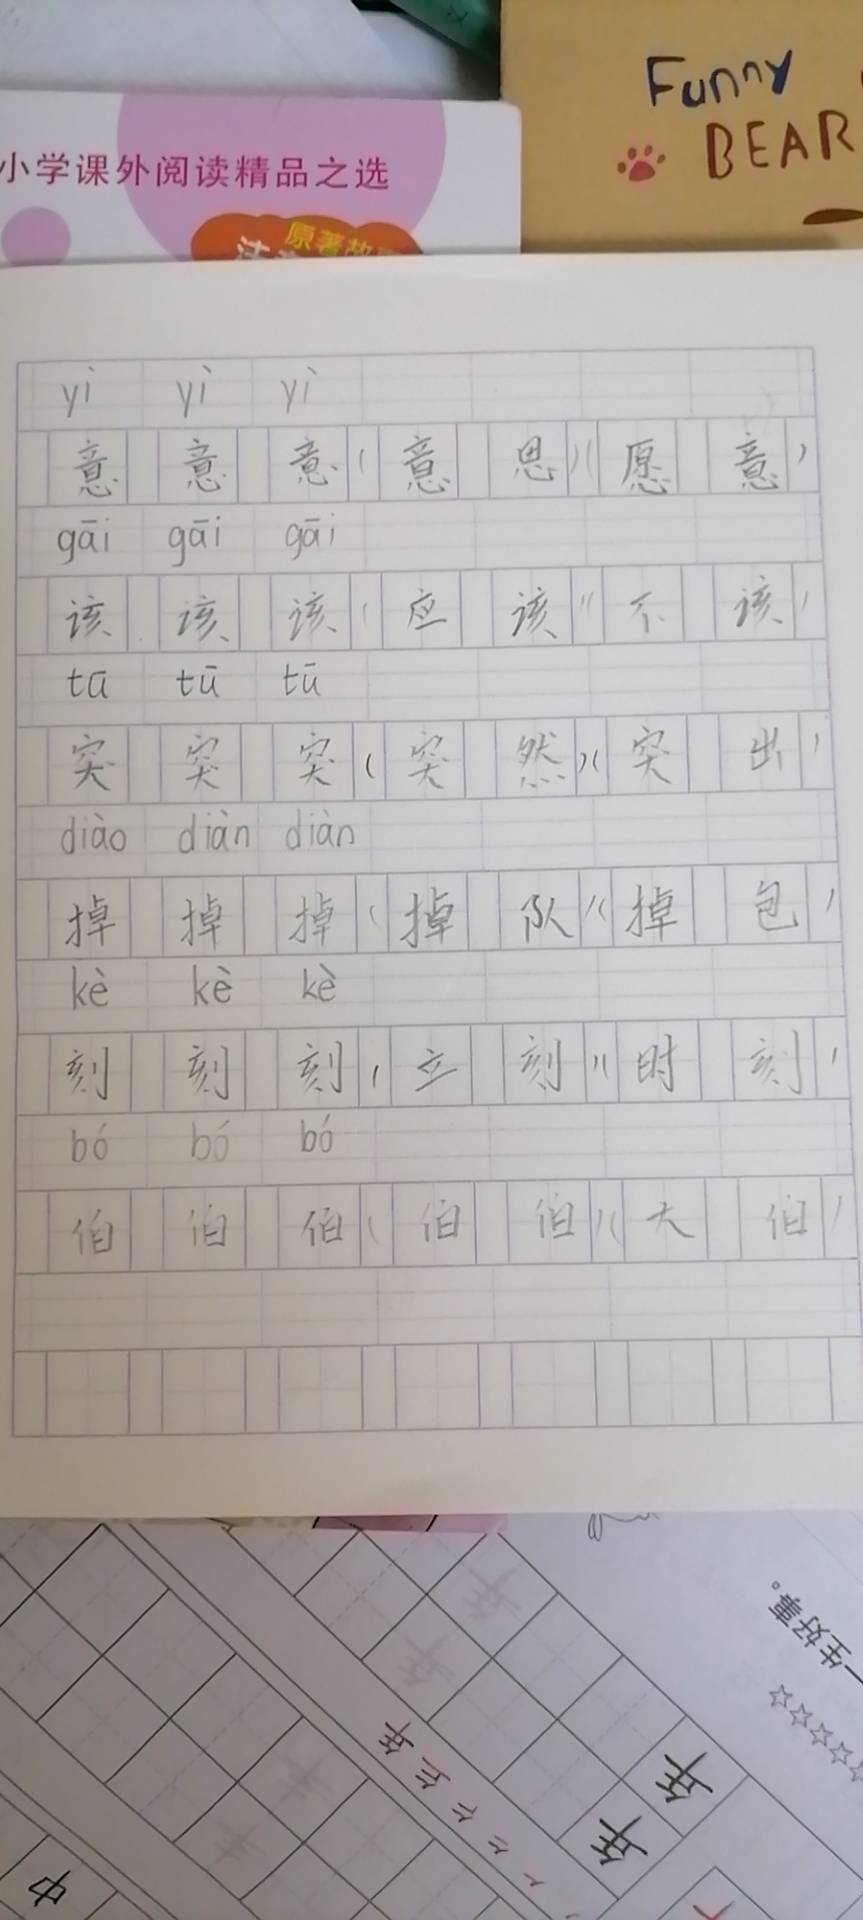 Funny
BEAR
小学课外阅读精品之选
原著故
yì yì yì
意 意 意 (意 思) (愿 意)
gāi gāi gāi
该 该 该 (应 该) (不 该)
tū tū tū
突 突 突 (突 然) (突 出)
diào diàn diàn
掉 掉 掉 (掉 队) (掉 包)
kè kè kè
刻 刻 刻 (立 刻) (时 刻)
bó bó bó
伯 伯 伯 (伯 伯) (大 伯)
一生好事。
☆☆☆☆☆
年 年
年
年
中